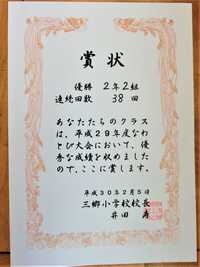 賞状
優勝 2年2組
連続回数 38回
あなたたちのクラス
は、平成29年度なわ
とび大会において、優
秀な成績を収めました
ので、ここに賞します。
平成30年2月5日
三郷小学校校長
井田 寿